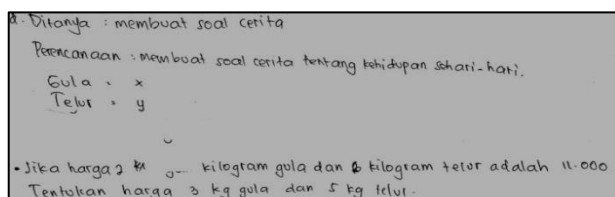 d. Ditanya : membuat soal cerita
Perencanaan : membuat soal cerita tentang kehidupan sehari-hari.
Gula = x
Telur = y
• Jika harga 2 kilogram gula dan kilogram telur adalah 11.000
Tentukan harga 3 kg gula dan 5 kg telur.